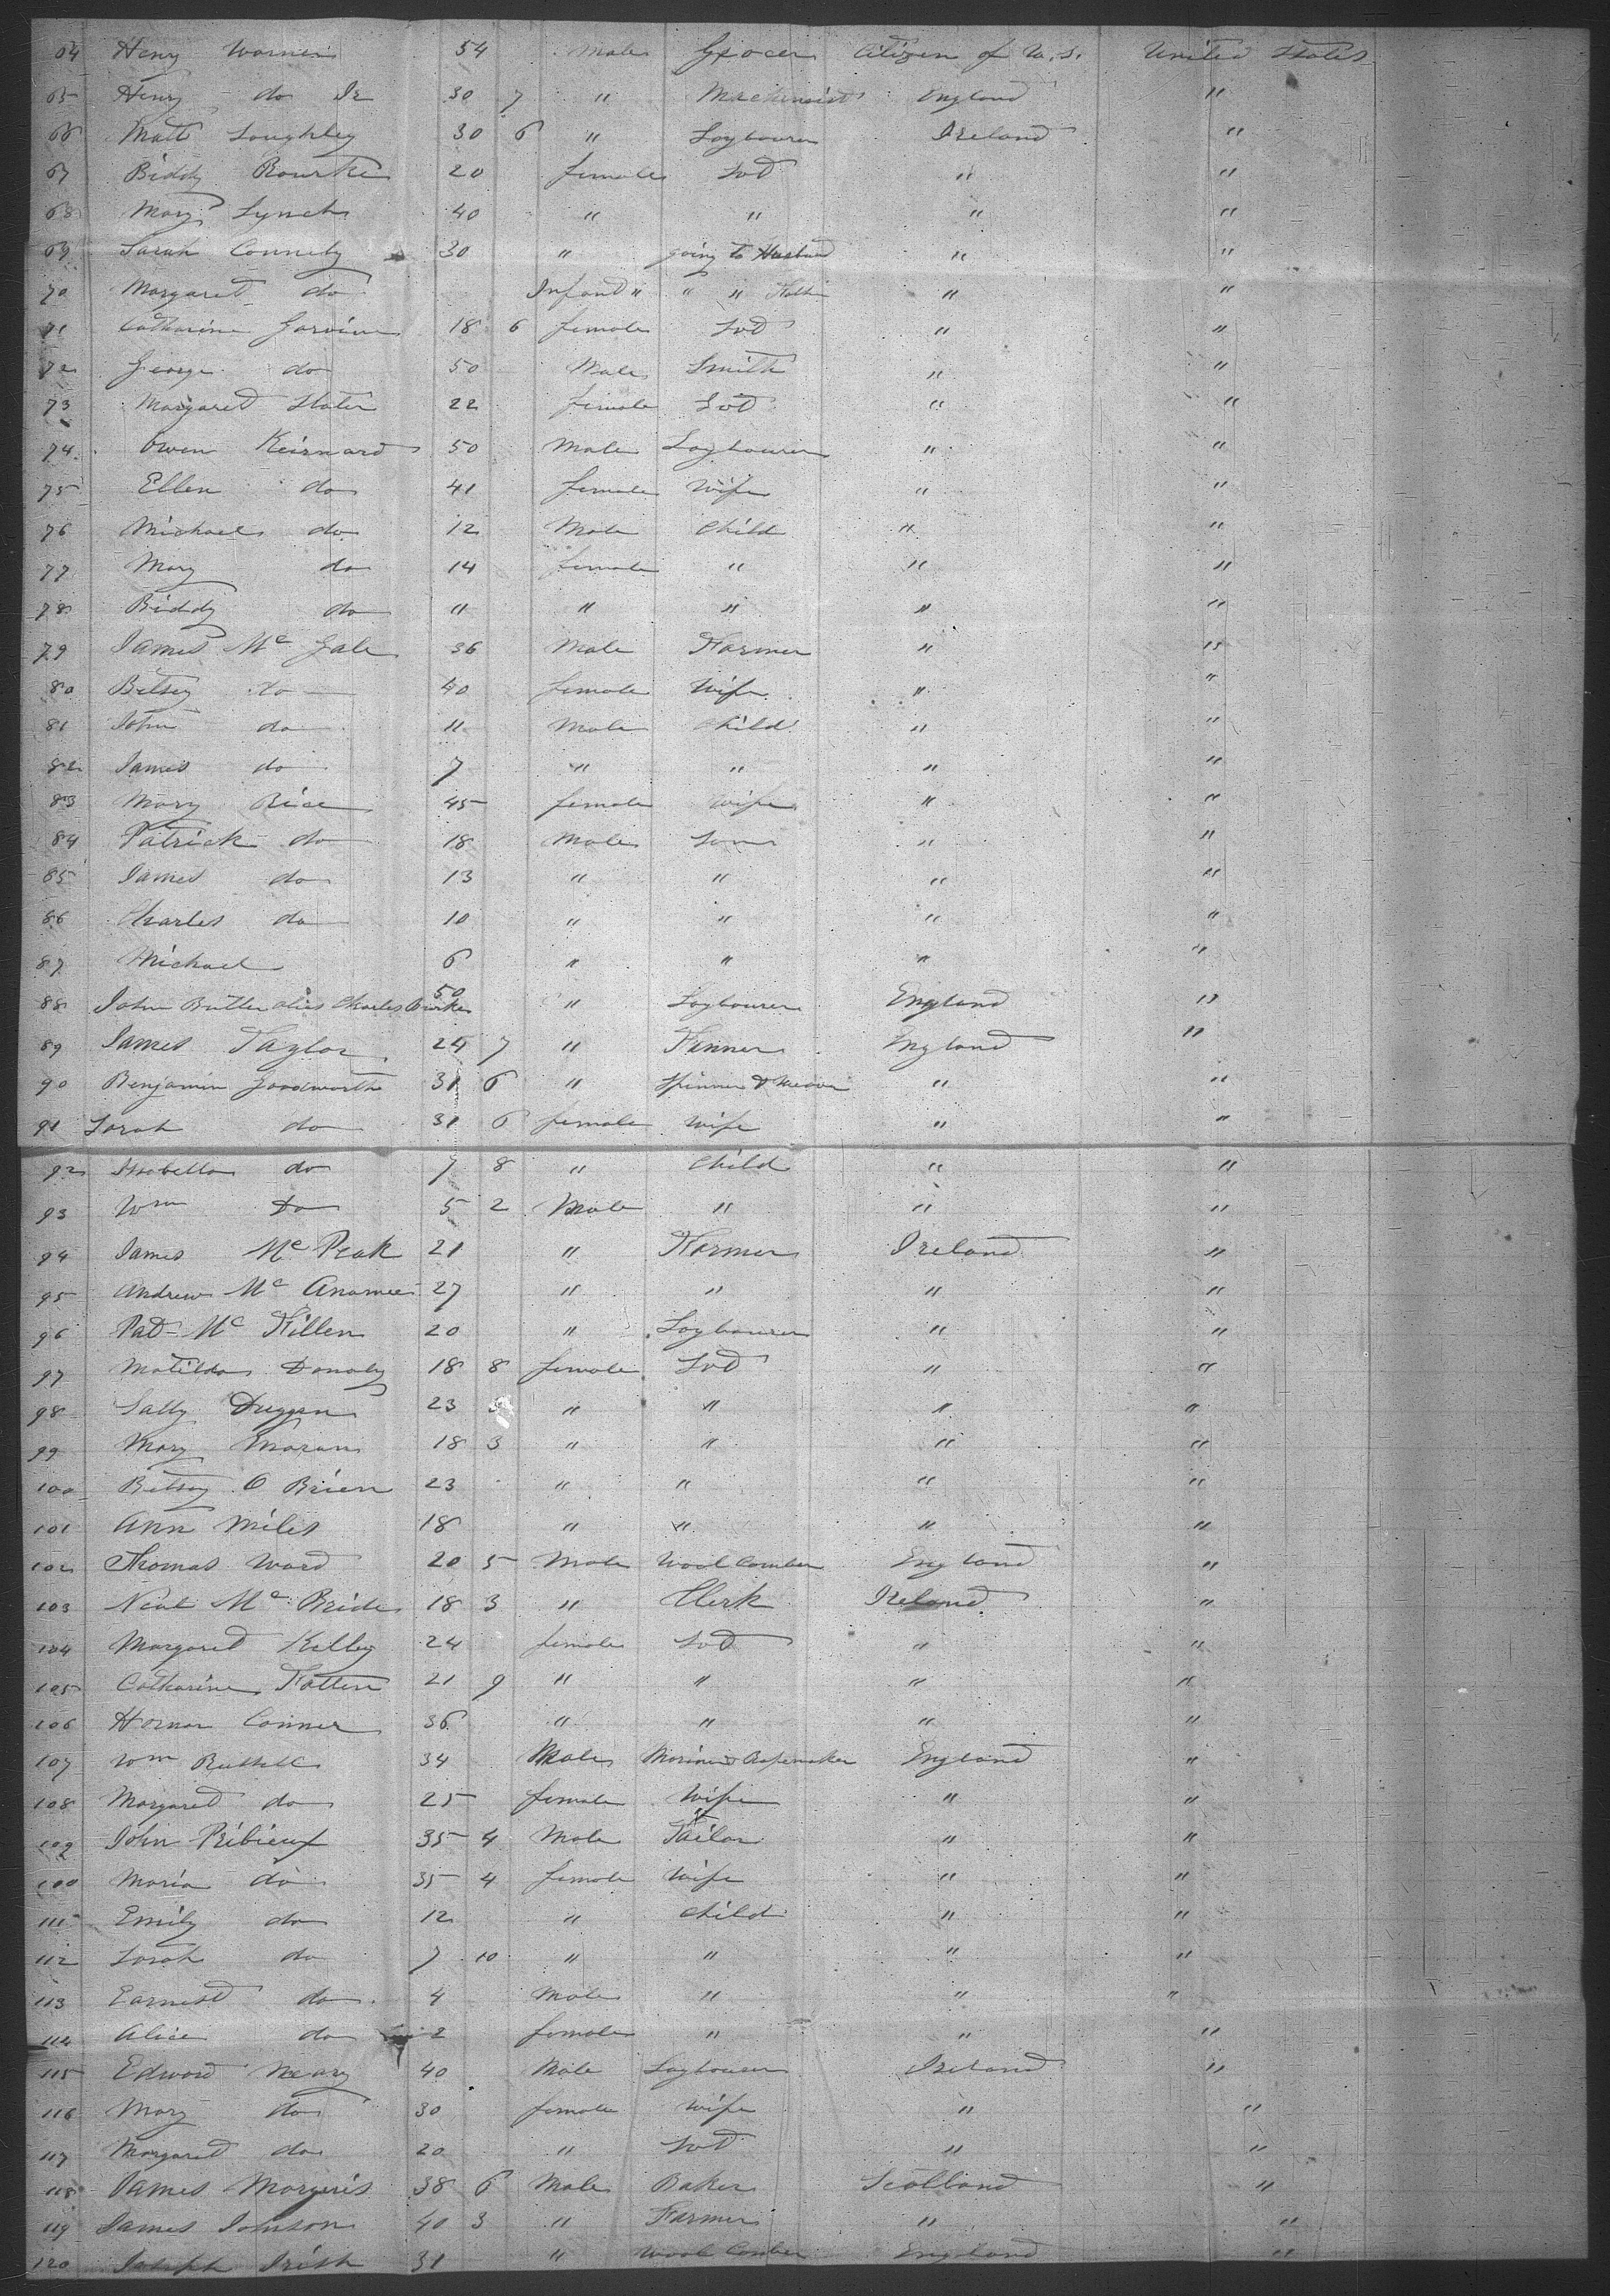 64 Henry Warner 54 Male Grocer Citizen of U.S. United States
65 Henry do Jr 30 7 " Machinist England "
66 Matt Loughley 30 6 " Laybourer Ireland "
67 Biddy Rourke 20 female Svt " "
68 Mary Lynch 40 " " " "
69 Sarah Connely 30 " going to Husband " "
70 Margaret do Infant " " " Fathr " "
71 Catharine Garvin 18 6 female Svt " "
72 George do 50 Male Smith " "
73 Margaret Slater 22 female Svt " "
74 Owen Keirnard 50 Male Laybourer " "
75 Ellen do 41 female Wife " "
76 Michael do 12 Male Child " "
77 Mary do 14 female " " "
78 Biddy do 11 " " " "
79 James Mc Gale 36 Male Farmer " "
80 Betsey do 40 female Wife " "
81 John do 11 Male Child " "
82 James do 7 " " " "
83 Mary Rice 45 female Wife " "
84 Patrick do 18 Male Son " "
85 James do 13 " " " "
86 Charles do 10 " " " "
87 Michael 6 " " " "
88 John Butler alies Charles Burke 50 " Laybourer England "
89 James Taylor 24 7 " Tanner England "
90 Benjamin Goodworth 31 6 " Spinner & Weaver " "
91 Sarah do 31 6 female Wife " "
92 Isabella do 7 8 " Child " "
93 Wm Do 5 2 Male " " "
94 James Mc Peak 21 " Farmer Ireland "
95 Andrew Mc Anamee 27 " " " "
96 Pat Mc Killen 20 " Laybourer " "
97 Matilda Donaly 18 8 female Svt " "
98 Sally Duggan 23 " " " "
99 Mary Moran 18 3 " " " "
100 Betsey O Brien 23 " " " "
101 Ann Miles 18 " " " "
102 Thomas Ward 20 5 Male Wool Comber England "
103 Neal Mc Bride 18 3 " Clerk Ireland "
104 Margaret Kelley 24 female Svt " "
105 Catharine Fatten 21 9 " " " "
106 Honor Conner 36 " " " "
107 Wm Russell 34 Male Mariner Ropemaker England "
108 Margaret do 25 female Wife " "
109 John Pribieux 35 4 Male Tailor " "
100 Maria do 35 4 female Wife " "
111 Emily do 12 " Child " "
112 Sarah do 7 10 " " " "
113 Earnest do 4 Male " " "
114 Alice do 2 female " " "
115 Edward Neary 40 Male Laybourer Ireland "
116 Mary do 30 female Wife " "
117 Margaret do 20 " Svt " "
118 James Morgeris 38 6 Male Baker Scotland "
119 James Johnson 40 3 " Farmer " "
120 Joseph Irish 31 " Wool Comber England "